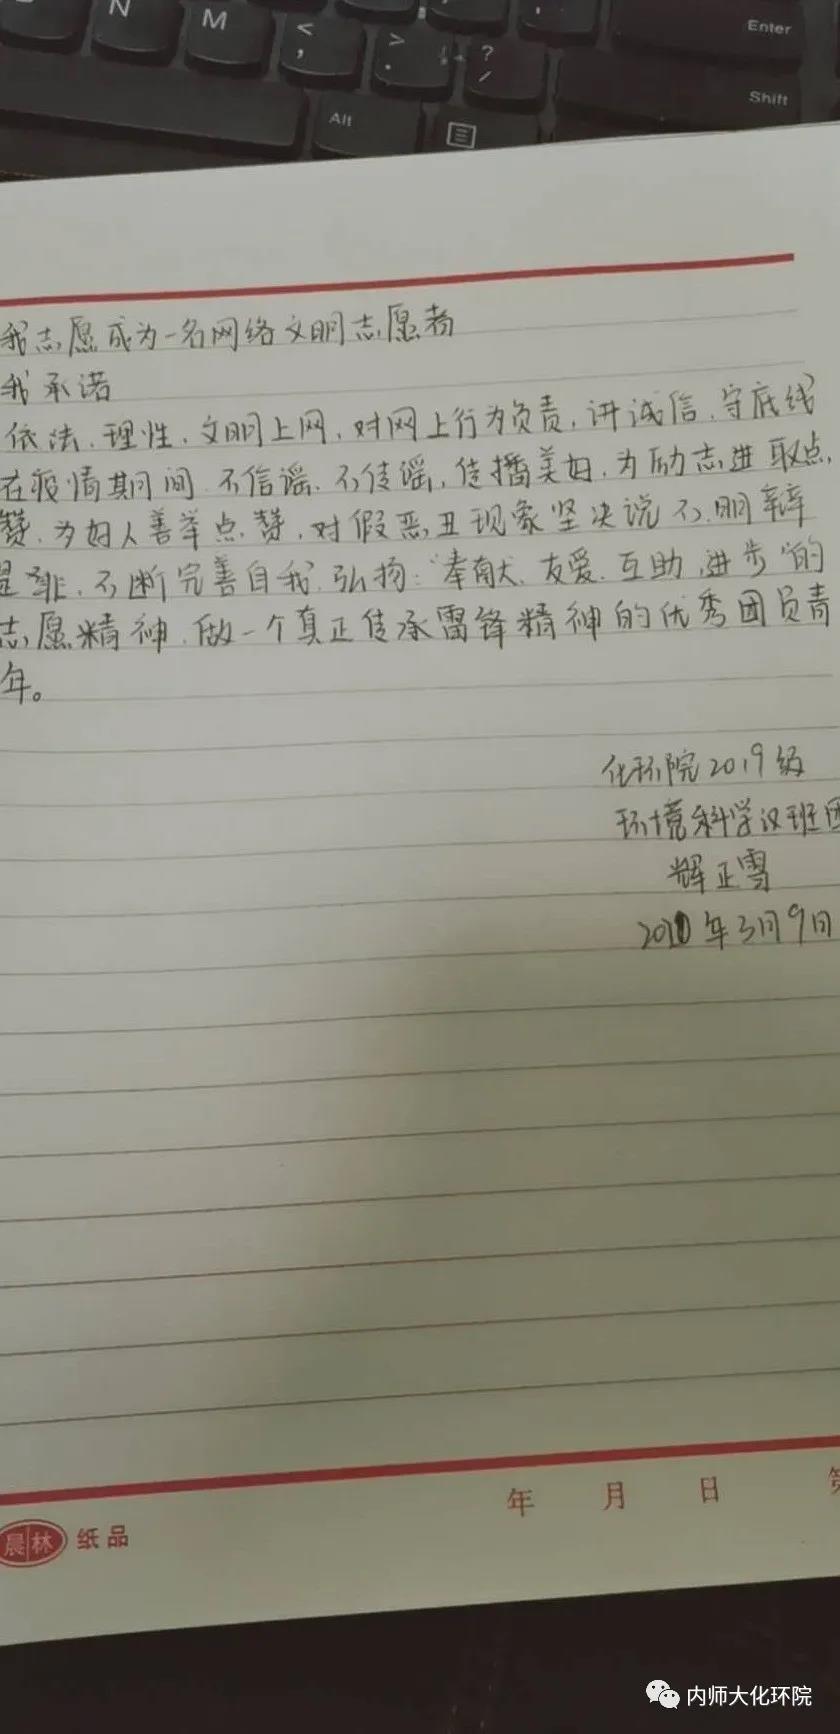 N
M
<
,
>
.
?
/
Enter
Alt
Shift
我志愿成为一名网络文明志愿者
我承诺
依法、理性、文明上网，对网上行为负责，讲诚信、守底线
在疫情期间、不信谣、不传谣，传播美好，为励志进取点
赞，为好人善举点赞，对假恶丑现象坚决说不，明辩
是非、不断完善自我，弘扬：“奉献、友爱、互助、进步”的
志愿精神，做一个真正传承雷锋精神的优秀团员青
年。
化环院2019级
环境科学汉班团
辉正雪
年3月9日
年 月 日 第
晨林 纸品
内师大化环院